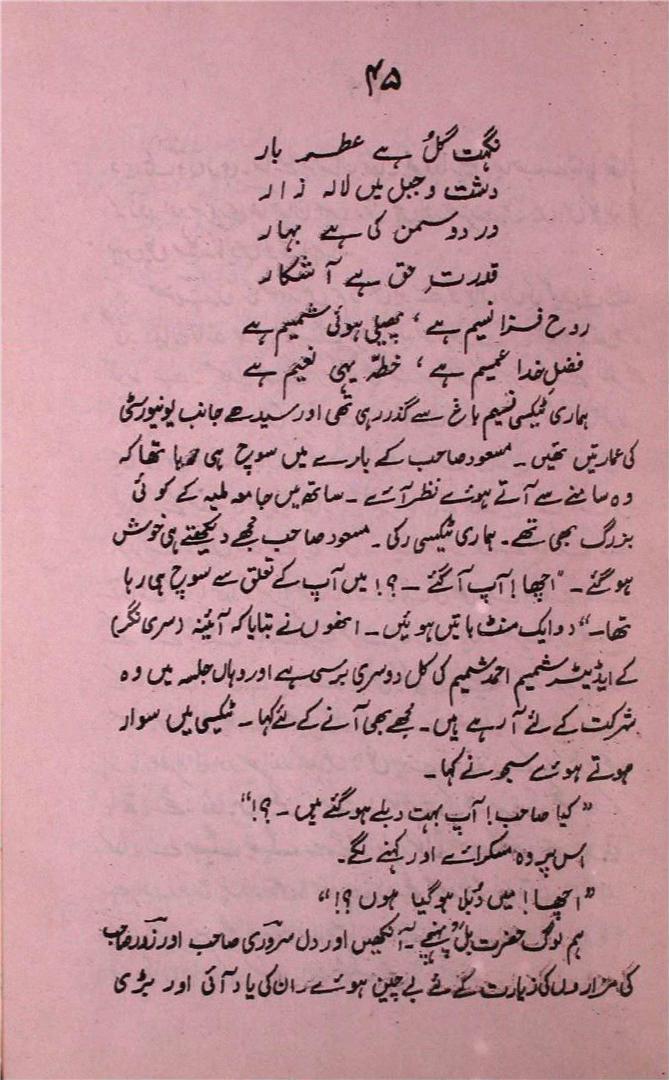 ۴۵
نگہتِ گُل ہے عطر بار
دشت و جبل میں لالہ زار
ورد و سمن کی ہے بہار
قدرتِ حق ہے آشکار
روح فزا نسیم ہے ، پھیلی ہوئی شمیم ہے
فضلِ خدا عمیم ہے ، خطّہ یہی نعیم ہے
ہماری ٹیکسی نسیم باغ سے گذر رہی تھی اور سیدھے جانب یونیورسٹی
کی عمارتیں تھیں ۔ مسعود صاحب کے بارے میں سوچ ہی رہا تھا کہ
وہ سامنے سے آتے ہوئے نظر آئے ۔ ساتھ میں جامعہ ملیہ کے کوئی
بزرگ بھی تھے ۔ ہماری ٹیکسی رکی ۔ مسعود صاحب مجھے دیکھتے ہی خوش
ہو گئے ۔ "اچھا ! آپ آ گئے ۔ ؟! میں آپ کے تعلق سے سوچ ہی رہا
تھا ۔" دو ایک منٹ باتیں ہوئیں ۔ انھوں نے بتایا کہ آئینہ (سری نگر)
کے ایڈیٹر شمیم احمد شمیم کی کل دوسری برسی ہے اور وہاں جلسہ میں وہ
شرکت کے لئے آ رہے ہیں ۔ مجھے بھی آنے کے لئے کہا ۔ ٹیکسی میں سوار
ہوتے ہوئے سبحو نے کہا ۔
"کیا صاحب ! آپ بہت دبلے ہو گئے ہیں ۔ ؟!"
اس پر وہ مسکرائے اور کہنے لگے ۔
"اچھا ! میں دُبلا ہو گیا ہوں ؟!"
ہم لوگ حضرت بل پہنچے ۔ آنکھیں اور دل سروری صاحب اور زور صاحب
کی مزاروں کی زیارت کے لئے بے چین ہوئے ۔ ان کی یاد آئی اور بڑی